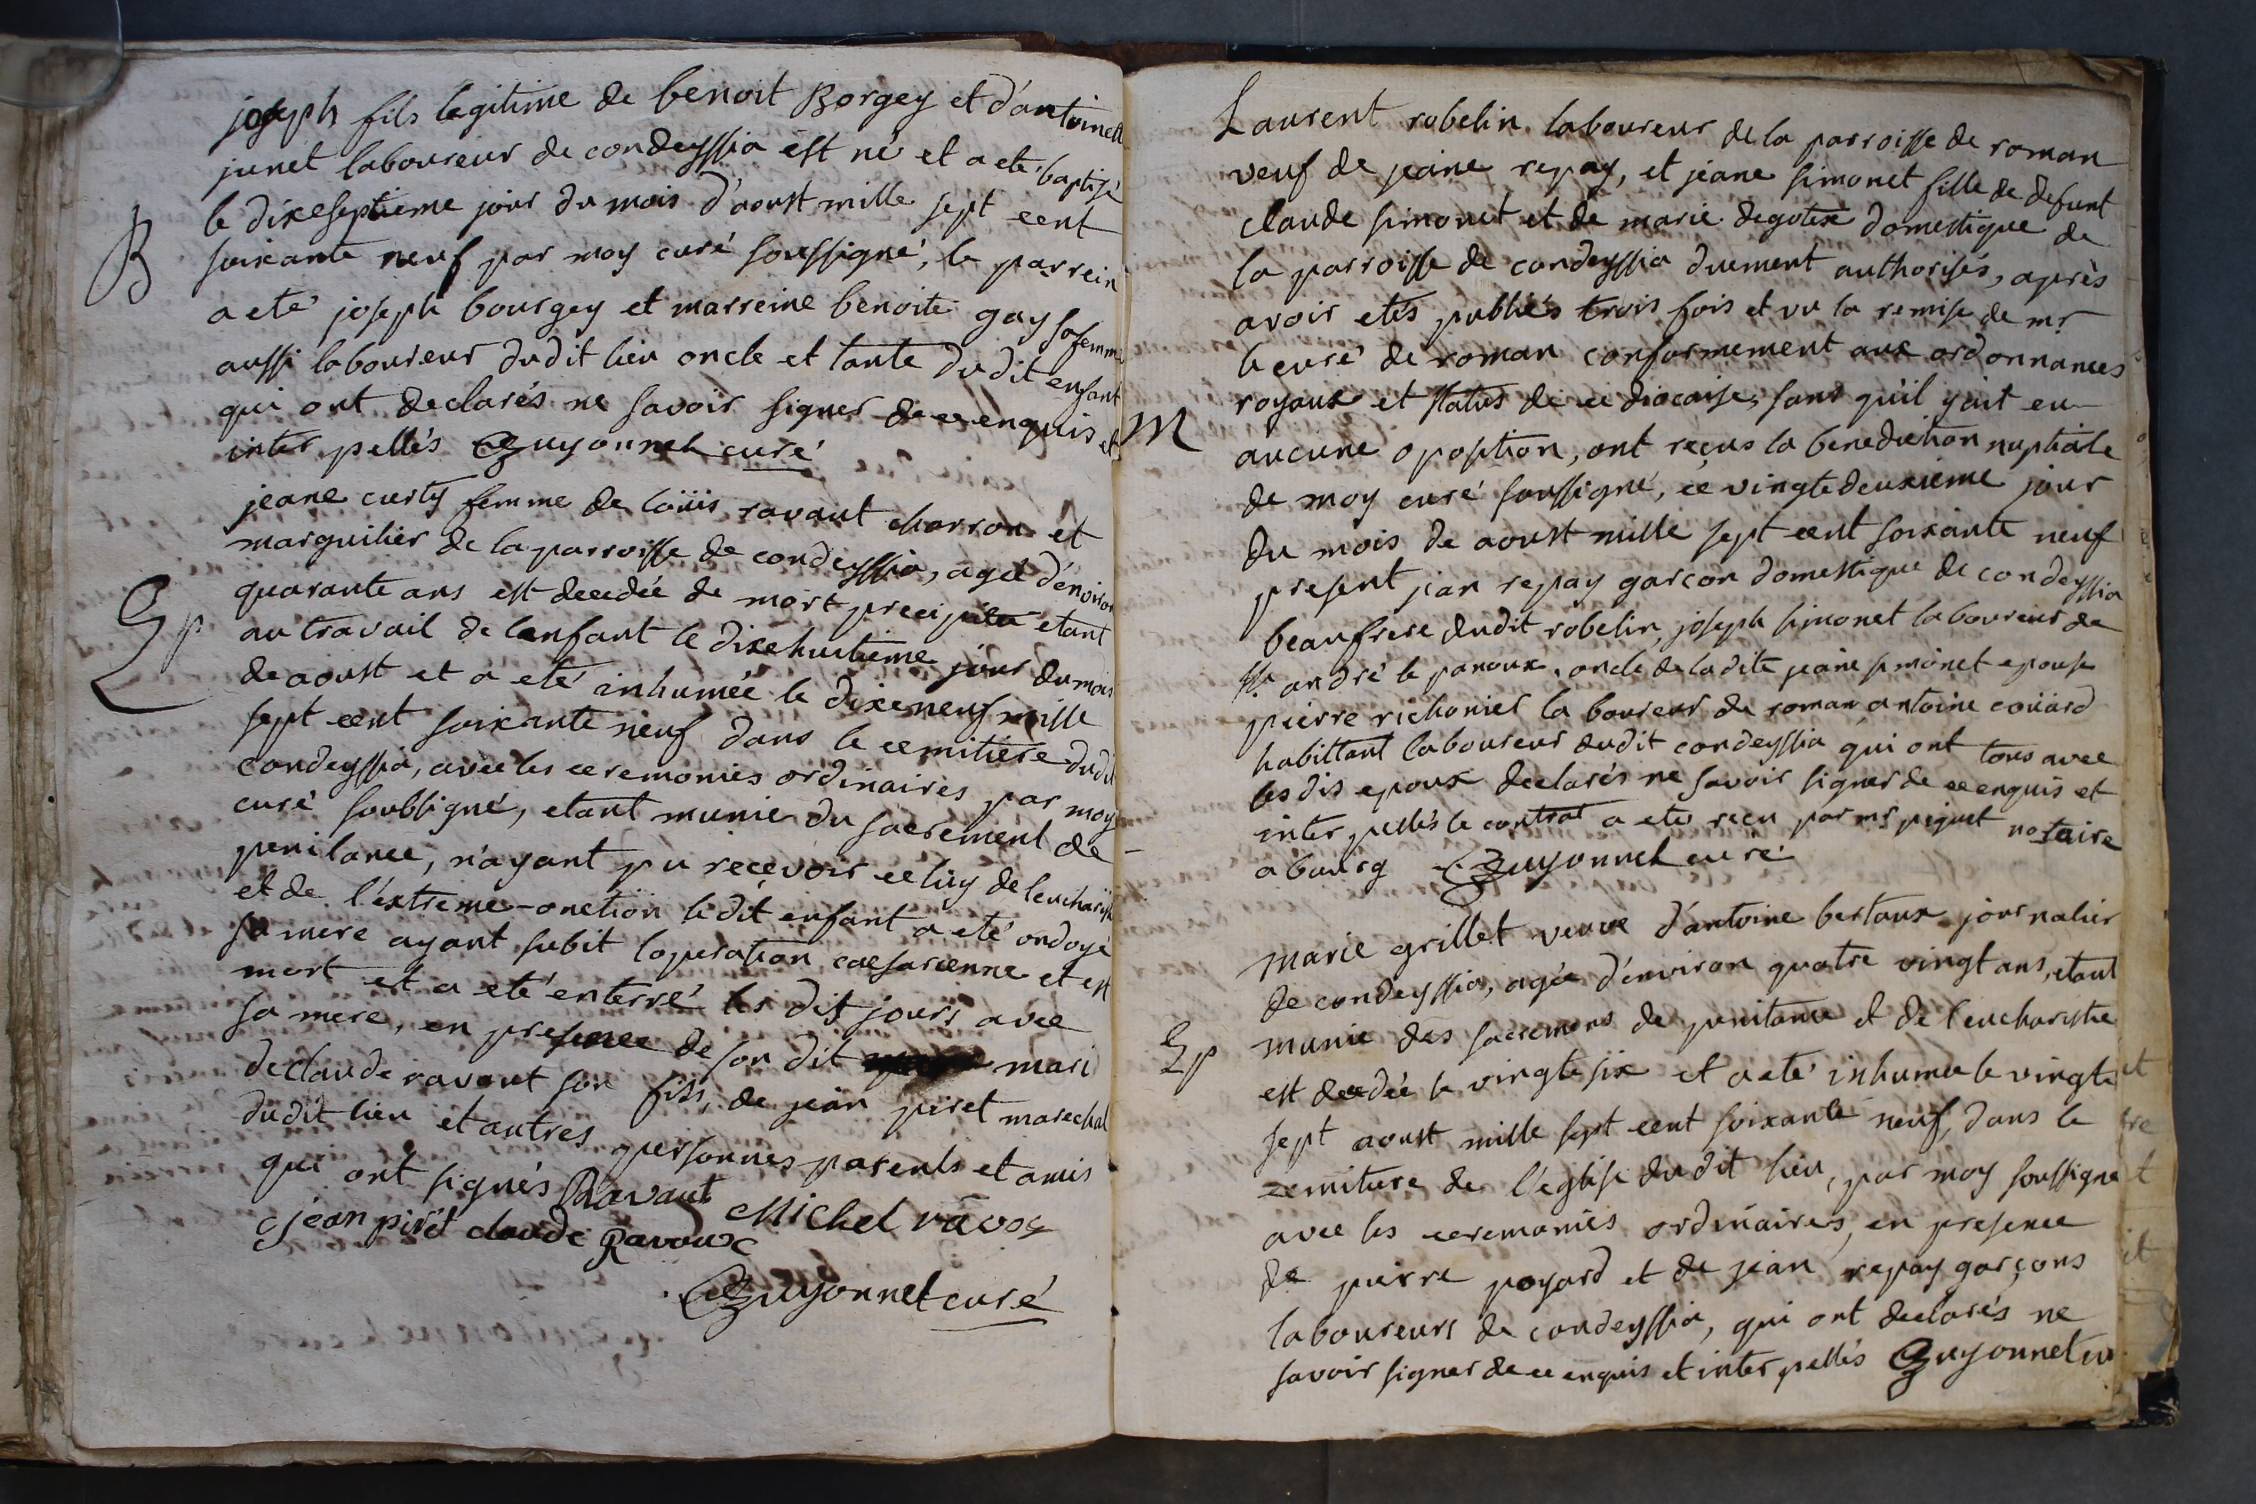 joseph fils legitime de benoit Borgey et d'antoinette
junet laboureur de condeyssia est né et a eté baptisé
B
le dixeseptieme jour du mois d'aoust mille sept cent
soixante neuf par moy curé soussigné, le parrein
a eté joseph bourgey et marreine benoite gay sa femme
aussi laboureur dudit lieu oncle et tante dudit enfant
qui ont declarés ne savoir signer de ce enquis et
inter pellés Guyonnet curé
jeane curty femme de loüis ravaut charron et
marguilier de la parroisse de condeyssia, agée d'environ
quarante ans est decedée de mort precipitée etant
Sp
au travail de lenfant le dixehuitieme jour du mois
de aoust et a eté inhumée le dixeneuf mille
sept cent soixante neuf dans le cemitiere dudit
condeyssia, avec les ceremonies ordinaires par moy
curé soubsigné, etant munie du sacrement de
penitance, n'ayant pu recevoir celuy de leucharistie
et de l'extreme-onction le dit enfant a eté ondoyé
sa mere ayant subit loperation caesarienne et est
mort et a eté enterré les dis jours avec
sa mere, en presence de son dit mari
de claude ravaut son fils, de jean piret marechal
dudit lieu et autres personnes parents et amis
qui ont signés Ravaut Michel ravoy
jean piret claude Ravoux
Guyonnet curé
Laurent robelin laboureur de la parroisse de roman
veuf de jeane repay, et jeane simonet fille de defunt
claude simonet et de marie degutex domestique de
la parroisse de condeyssia duement authorisés, après
avoir etés publiés trois fois et vu la remise de mr
le curé de roman conformement aux ordonnances
royaux et status de ce diocaise, sans qu'il y ait eu
M
aucune oposition, ont reçus la benediction nuptiale
de moy curé soussigné, ce vingtedeuxieme jour
du mois de aoust mille sept cent soixante neuf
present jean repay garcon domestique de condeyssia
beaufrere dudit robelin, joseph simonet laboureur de
st andré le panoux, oncle de ladite jeane simonet epouse
pierre richonier la boureur de roman antoine coüard
habittant laboureur dudit condeyssia qui ont tous avec
les dis epoux declarés ne savoir signer de ce enquis et
inter pellés le contrat a eté reçu par mr piquet notaire
a bourg Guyonnet curé
marie grillet veuve d'antoine bertaux journalier
de condeyssia, agée d'environ quatre vingt ans, etant
Sp
munie des sacremens de penitance et de l'eucharistie
est decedée le vingtesix et a eté inhumée le vingte
sept aoust mille sept cent soixante neuf, dans le
cemitiere de l'eglise dudit lieu, par moy soussigné
avec les ceremonies ordinaires, en presence
de pierre poyard et de jean repay garçons
laboureurs de condeyssia, qui ont declarés ne
savoir signer de ce enquis et inter pellés Guyonnet cu